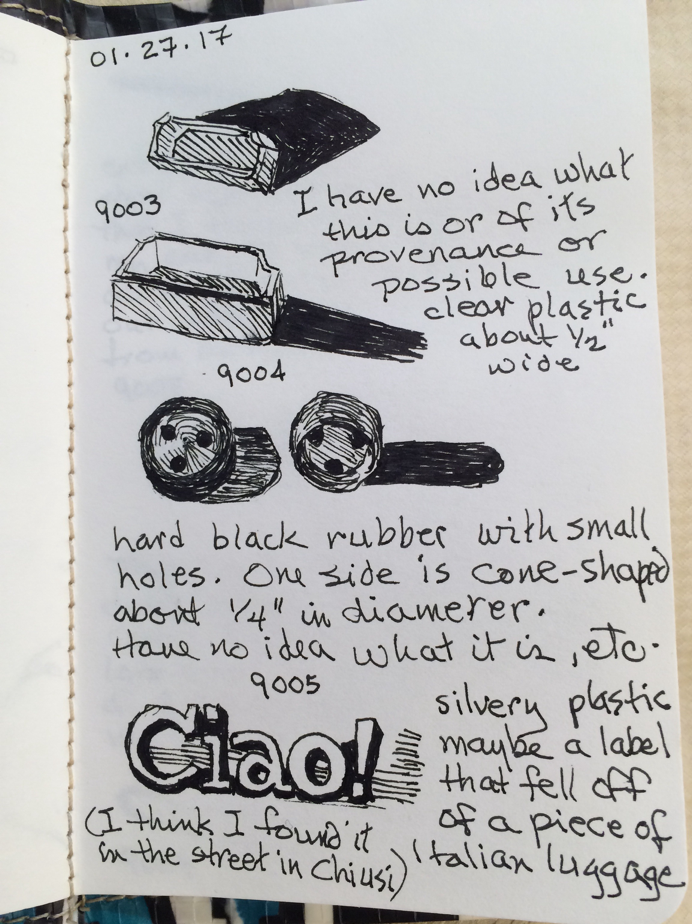 01.27.17
9003
I have no idea what
this is or of its
provenance or
possible use.
clear plastic
about 1/2"
wide
9004
hard black rubber with small
holes. One side is cone-shaped
about 1/4" in diameter.
Have no idea what it is, etc.
9005
Ciao!
silvery plastic
maybe a label
that fell off
of a piece of
Italian luggage
(I think I found it
in the street in Chiusi)